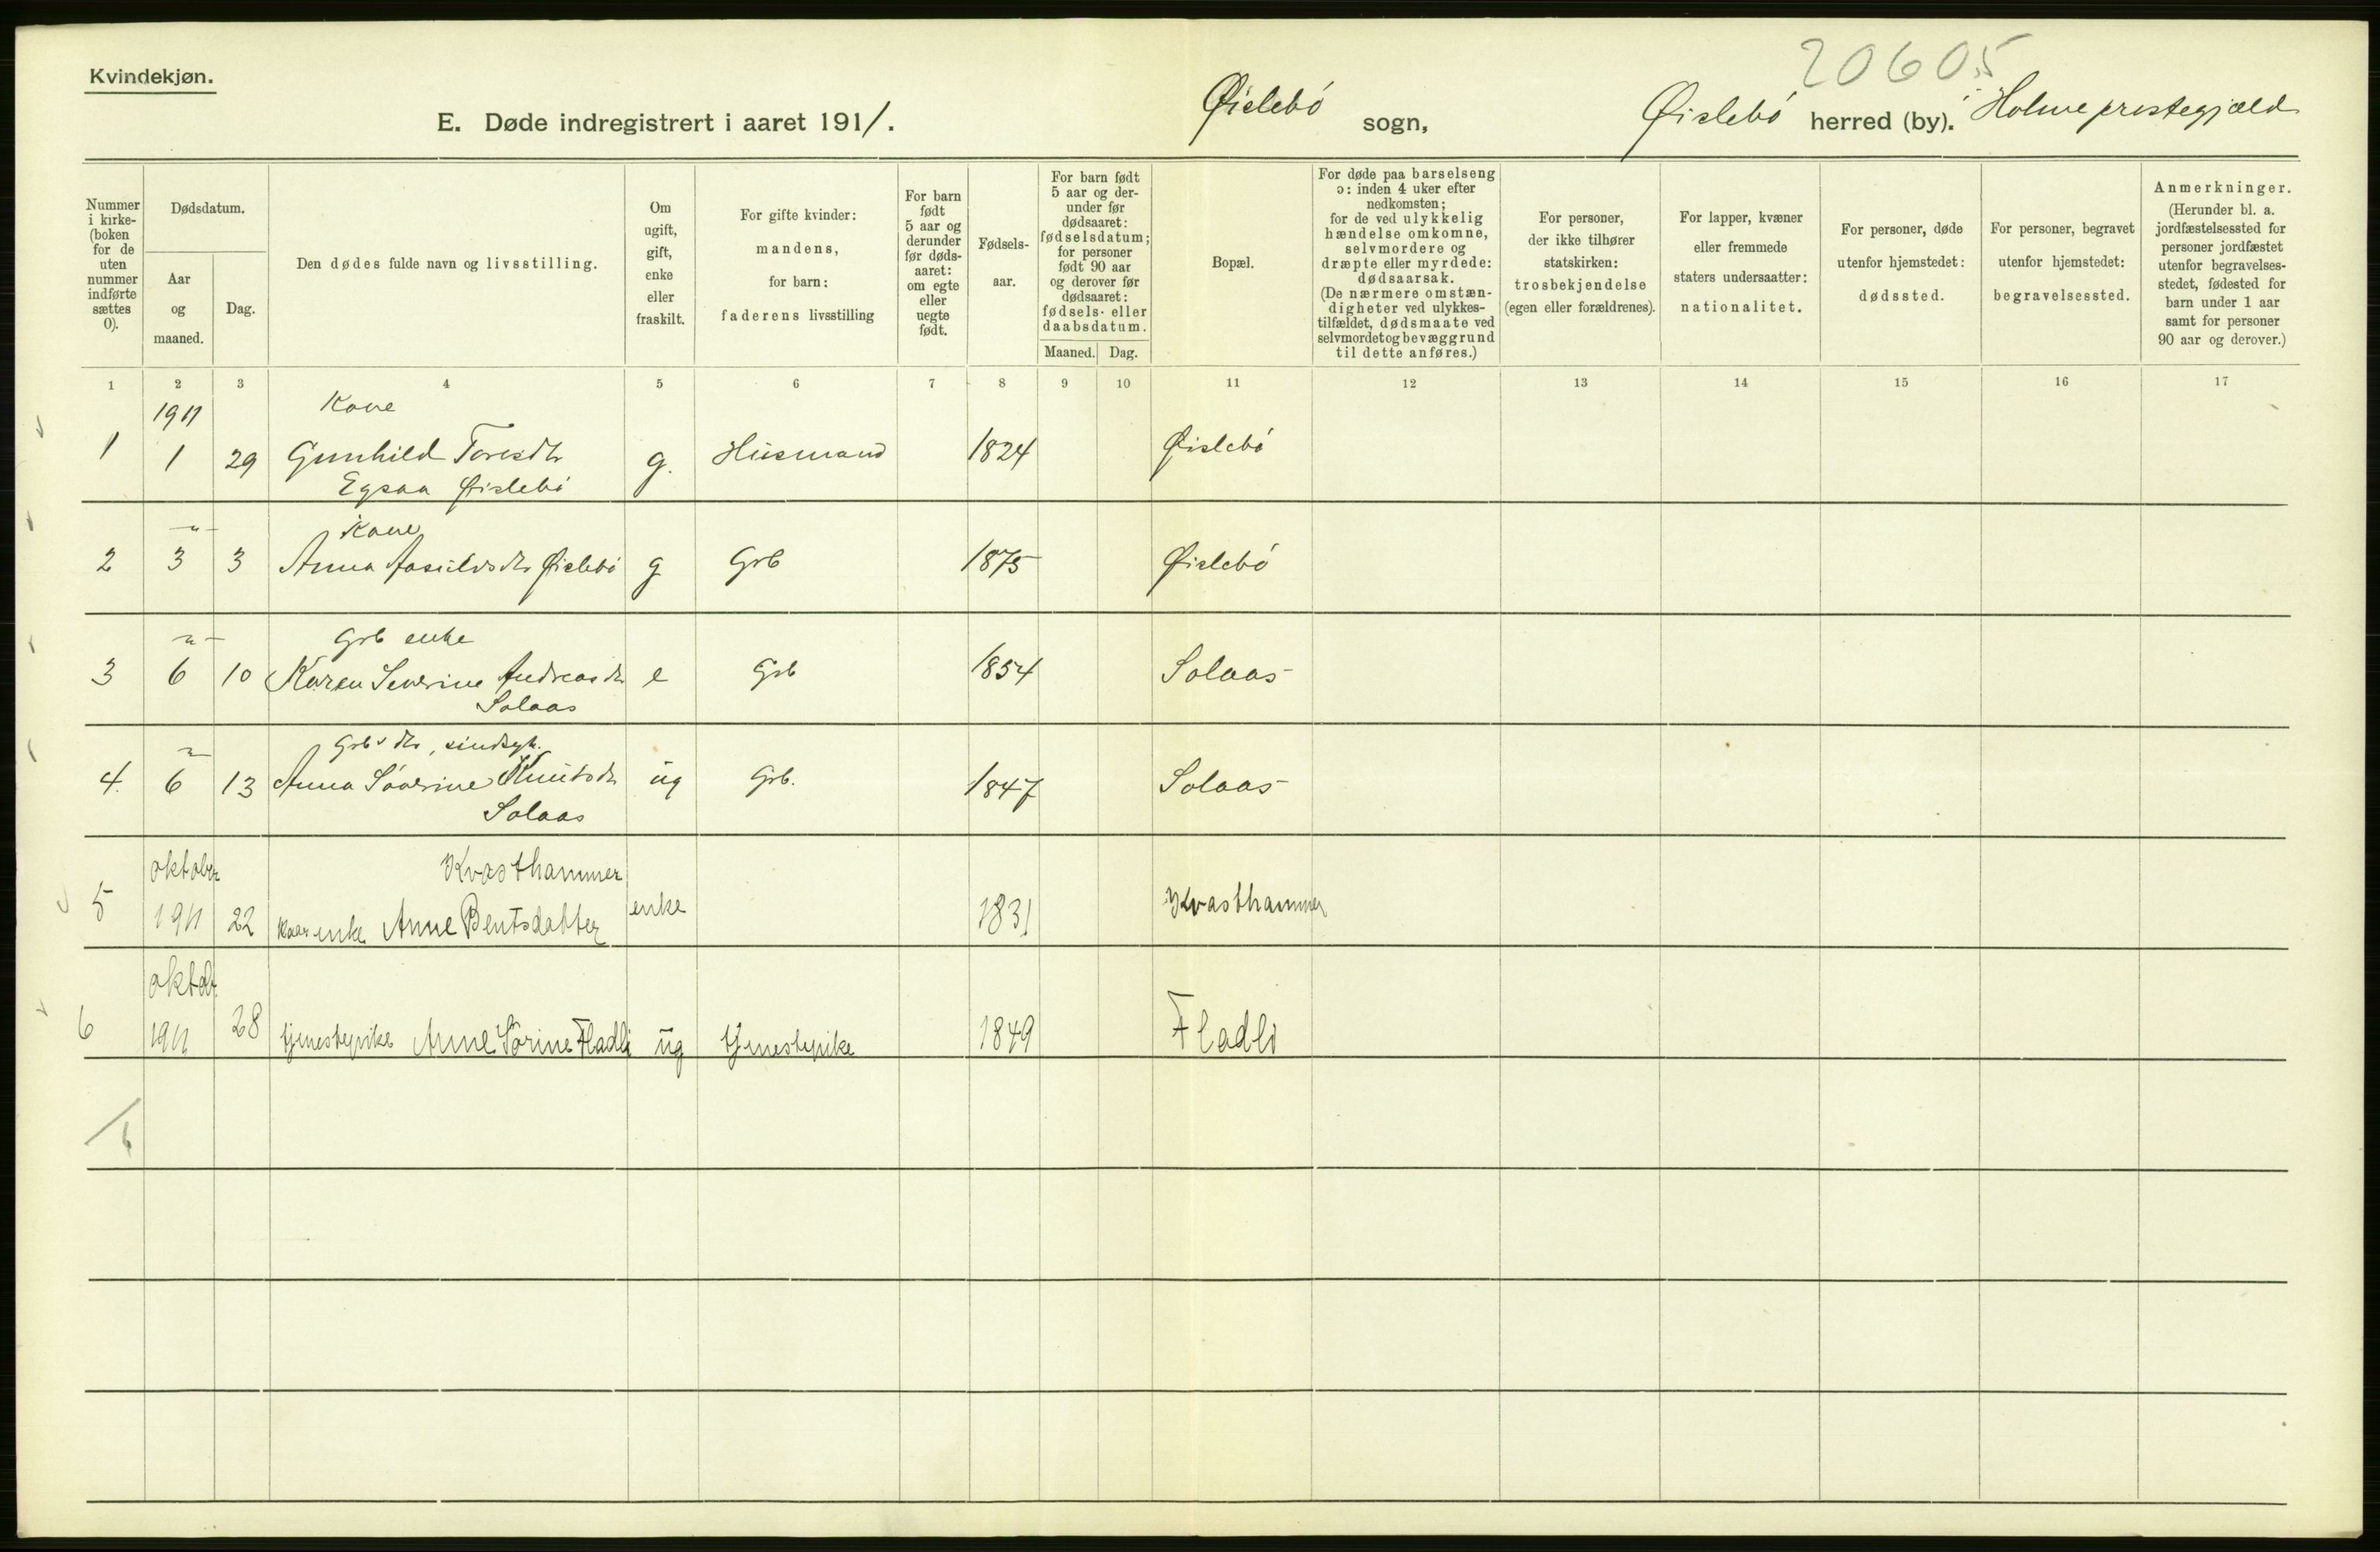 20605
Kvindekjøn.
E. Døde indregistrert i aaret 1911. Øislebö sogn, Øislebö herred (by). Holme prestegjæld
Nummer i kirke-(boken for de uten nummer indførte sættes 0).
Dødsdatum.
Aar og maaned.
Dag.
Den dødes fulde navn og livsstilling.
Om ugift, gift, enke eller fraskilt.
For gifte kvinder: mandens, for barn: faderens livsstilling
For barn født 5 aar og derunder før døds-aaret: om egte eller uegte født.
Fødsels-aar.
For barn født 5 aar og der-under før dødsaaret: fødselsdatum; for personer født 90 aar og derover før dødsaaret: fødsels- eller daabsdatum.
Maaned. Dag.
Bopæl.
For døde paa barselseng ɔ: inden 4 uker efter nedkomsten; for de ved ulykkelig hændelse omkomne, selvmordere og dræpte eller myrdede: dødsaarsak. (De nærmere omstæn-digheter ved ulykkes-tilfældet, dødsmaate ved selvmordet og bevæggrund til dette anføres.)
For personer, der ikke tilhører statskirken: trosbekjendelse (egen eller forældrenes).
For lapper, kvæner eller fremmede staters undersaatter: nationalitet.
For personer, døde utenfor hjemstedet: dødssted.
For personer, begravet utenfor hjemstedet: begravelsessted.
Anmerkninger. (Herunder bl. a. jordfæstelsessted for personer jordfæstet utenfor begravelses-stedet, fødested for barn under 1 aar samt for personer 90 aar og derover.)
1 2 3 4 5 6 7 8 9 10 11 12 13 14 15 16 17
1911 Kone
1 1 29 Gunhild Toresdtr g. Husmand 1824 Øislebö
Egsaa Øislebö
-"- Kone
2 3 3 Anna Aasulvsdtr Øislebö g Grb 1875 Øislebö
-"- Grb enke
3 6 10 Karen Severine Andreasdtr e Grb 1854 Solaas
Solaas
" Grbs dtr, sindsyk.
4. 6 13 Anna Söverine Knutsdtr ug Grb. 1847 Solaas
Solaas
oktober Kvasthammer
5 1911 22 Kaarenke Anne Bentsdatter enke 1831 Kvasthammer
oktbr
6 1911 28 tjenestepike Anne Sörine Fladli ug tjenestepike 1849 Fladli
/6